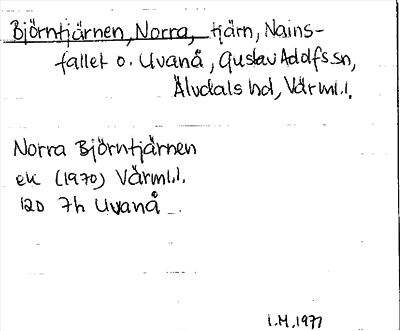 Björntjärnen, Norra, tjärn, Nains-
fallet o. Uvanå, Gustav Adolfs sn,
Älvdals hd, Värml.l.
Norra Björntjärnen
ek (1970) Värml.l.
12D 7h Uvanå
I.M. 1977